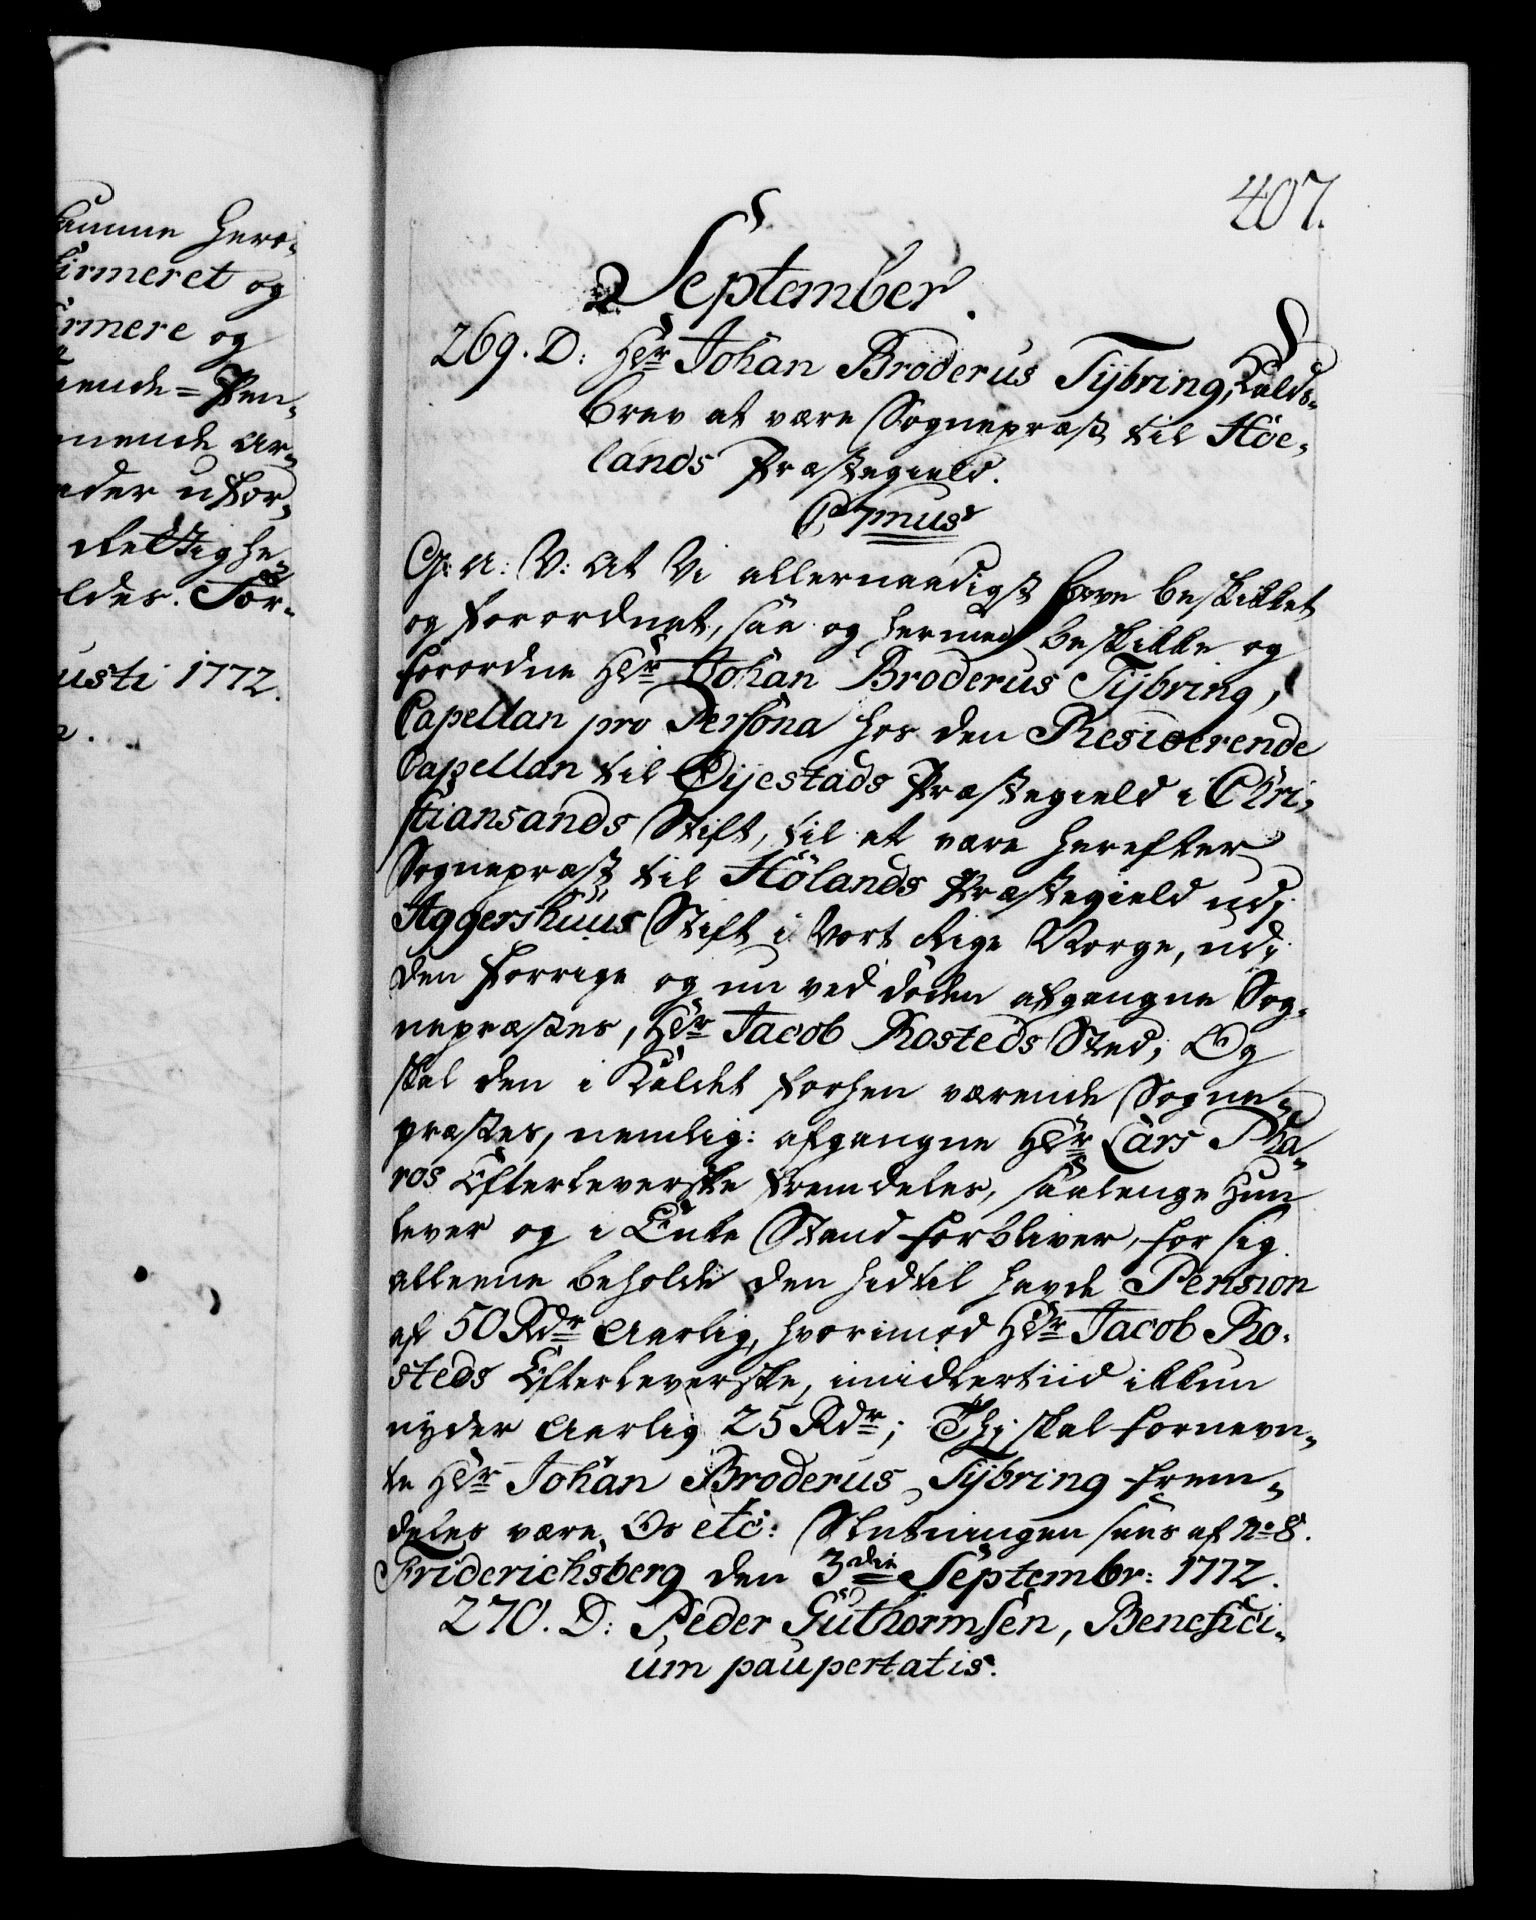 aumme herr-
firmeret og
irmere og
aende = Pen-
mende Ar-
ader ufor-
Rettighe-
ldes. For-
usti 1772.
407.
September.
269. D: Hr Johan Broderus Tÿbring, Kalds-
Brev at være Sognepræst til Höe-
lands Præstegield.
C 7mus
G: A: V: At Vi allernaadigst have beskikket
og forordnet, saa og hermed beskikke og
forordne Hr Johan Broderus Tÿbring,
Capellan pro Persona hos den Residerende
Capellan til Öÿestads Præstegield i Chri-
stiansands Stift, til at være herefter
Sognepræst til Hölands Præstegield udj
Aggershuus Stift i Vort Rige Norge, udj
den forrige og nu ved döden afgangne Sog-
nepræstes, Hr Jacob Rosteds Sted; Og
skal den i Kaldet forhen værende Sogne-
præstes, nemlig: afgangne Hr Lars Pha-
ros Efterleverske fremdeles, saalenge Hun
lever og i Enke Stand forbliver, for sig
alleene beholde den hidtil havde Pension
af 50 Rdr Aarlig, hvorimod Hr Jacob Ro-
steds Efterleverske, imidlertiid ikkun
nyder Aarlig 25 Rdr; Thj skal fornevn-
te Hr Johan Broderus Tÿbring frem-
deles være Os etc: Slutningen sees af No 8.
Friderichsberg den 3die Septembr: 1772.
270. D: Peder Guthormsen, Benefici-
um paupertatis.